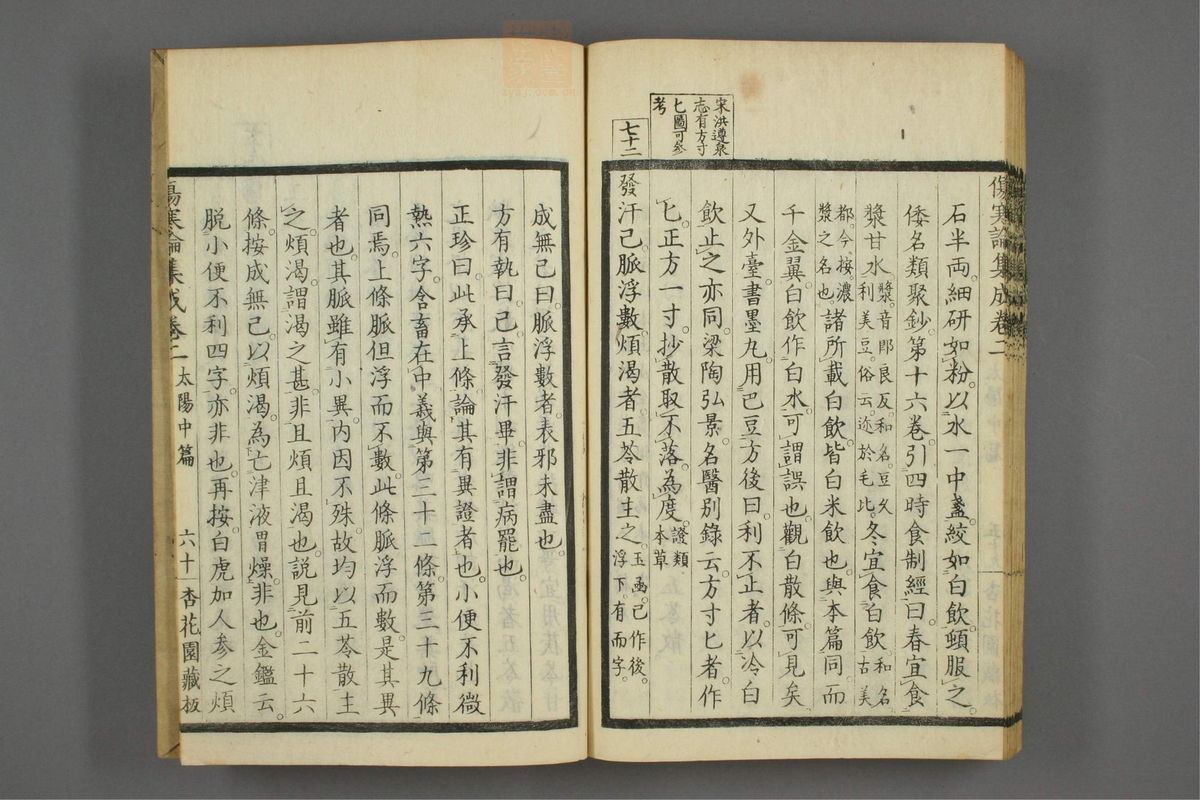 傷寒論集成卷二
石半両細研如粉以水一中盞絞如白飲頓服之
倭名類聚鈔第十六卷引四時食制經曰春宜食
漿甘水漿音即良反和名豆久利美豆俗云迩於毛比冬宜食白飲和名古美
都今按濃漿之名也諸所載白飲皆白米飲也與本篇同而
千金翼白飲作白水可謂誤也觀白散條可見矣
又外臺書墨丸用巴豆方後曰利不止者以冷白
飲止之亦同梁陶弘景名醫別錄云方寸匕者作
匕正方一寸抄散取不落為度證類本草
宋洪遵泉
志有方寸
匕圖可參
考
七十二
發汗已脈浮數煩渴者五苓散主之玉函已作後浮下有而字
成無己曰脈浮數者表邪未盡也
方有執曰已言發汗畢非謂病罷也
正珍曰此承上條論其有異證者也小便不利微
熱六字含畜在中義與第三十二條第三十九條
同焉上條脈但浮而不數此條脈浮而數是其異
者也其脈雖有小異內因不殊故均以五苓散主
之煩渴謂渴之甚非且煩且渴也說見前二十六
條按成無己以煩渴為亡津液胃燥非也金鑑云
脫小便不利四字亦非也再按白虎加人參之煩
傷寒論集成卷二 太陽中篇 六十 杏花園藏板